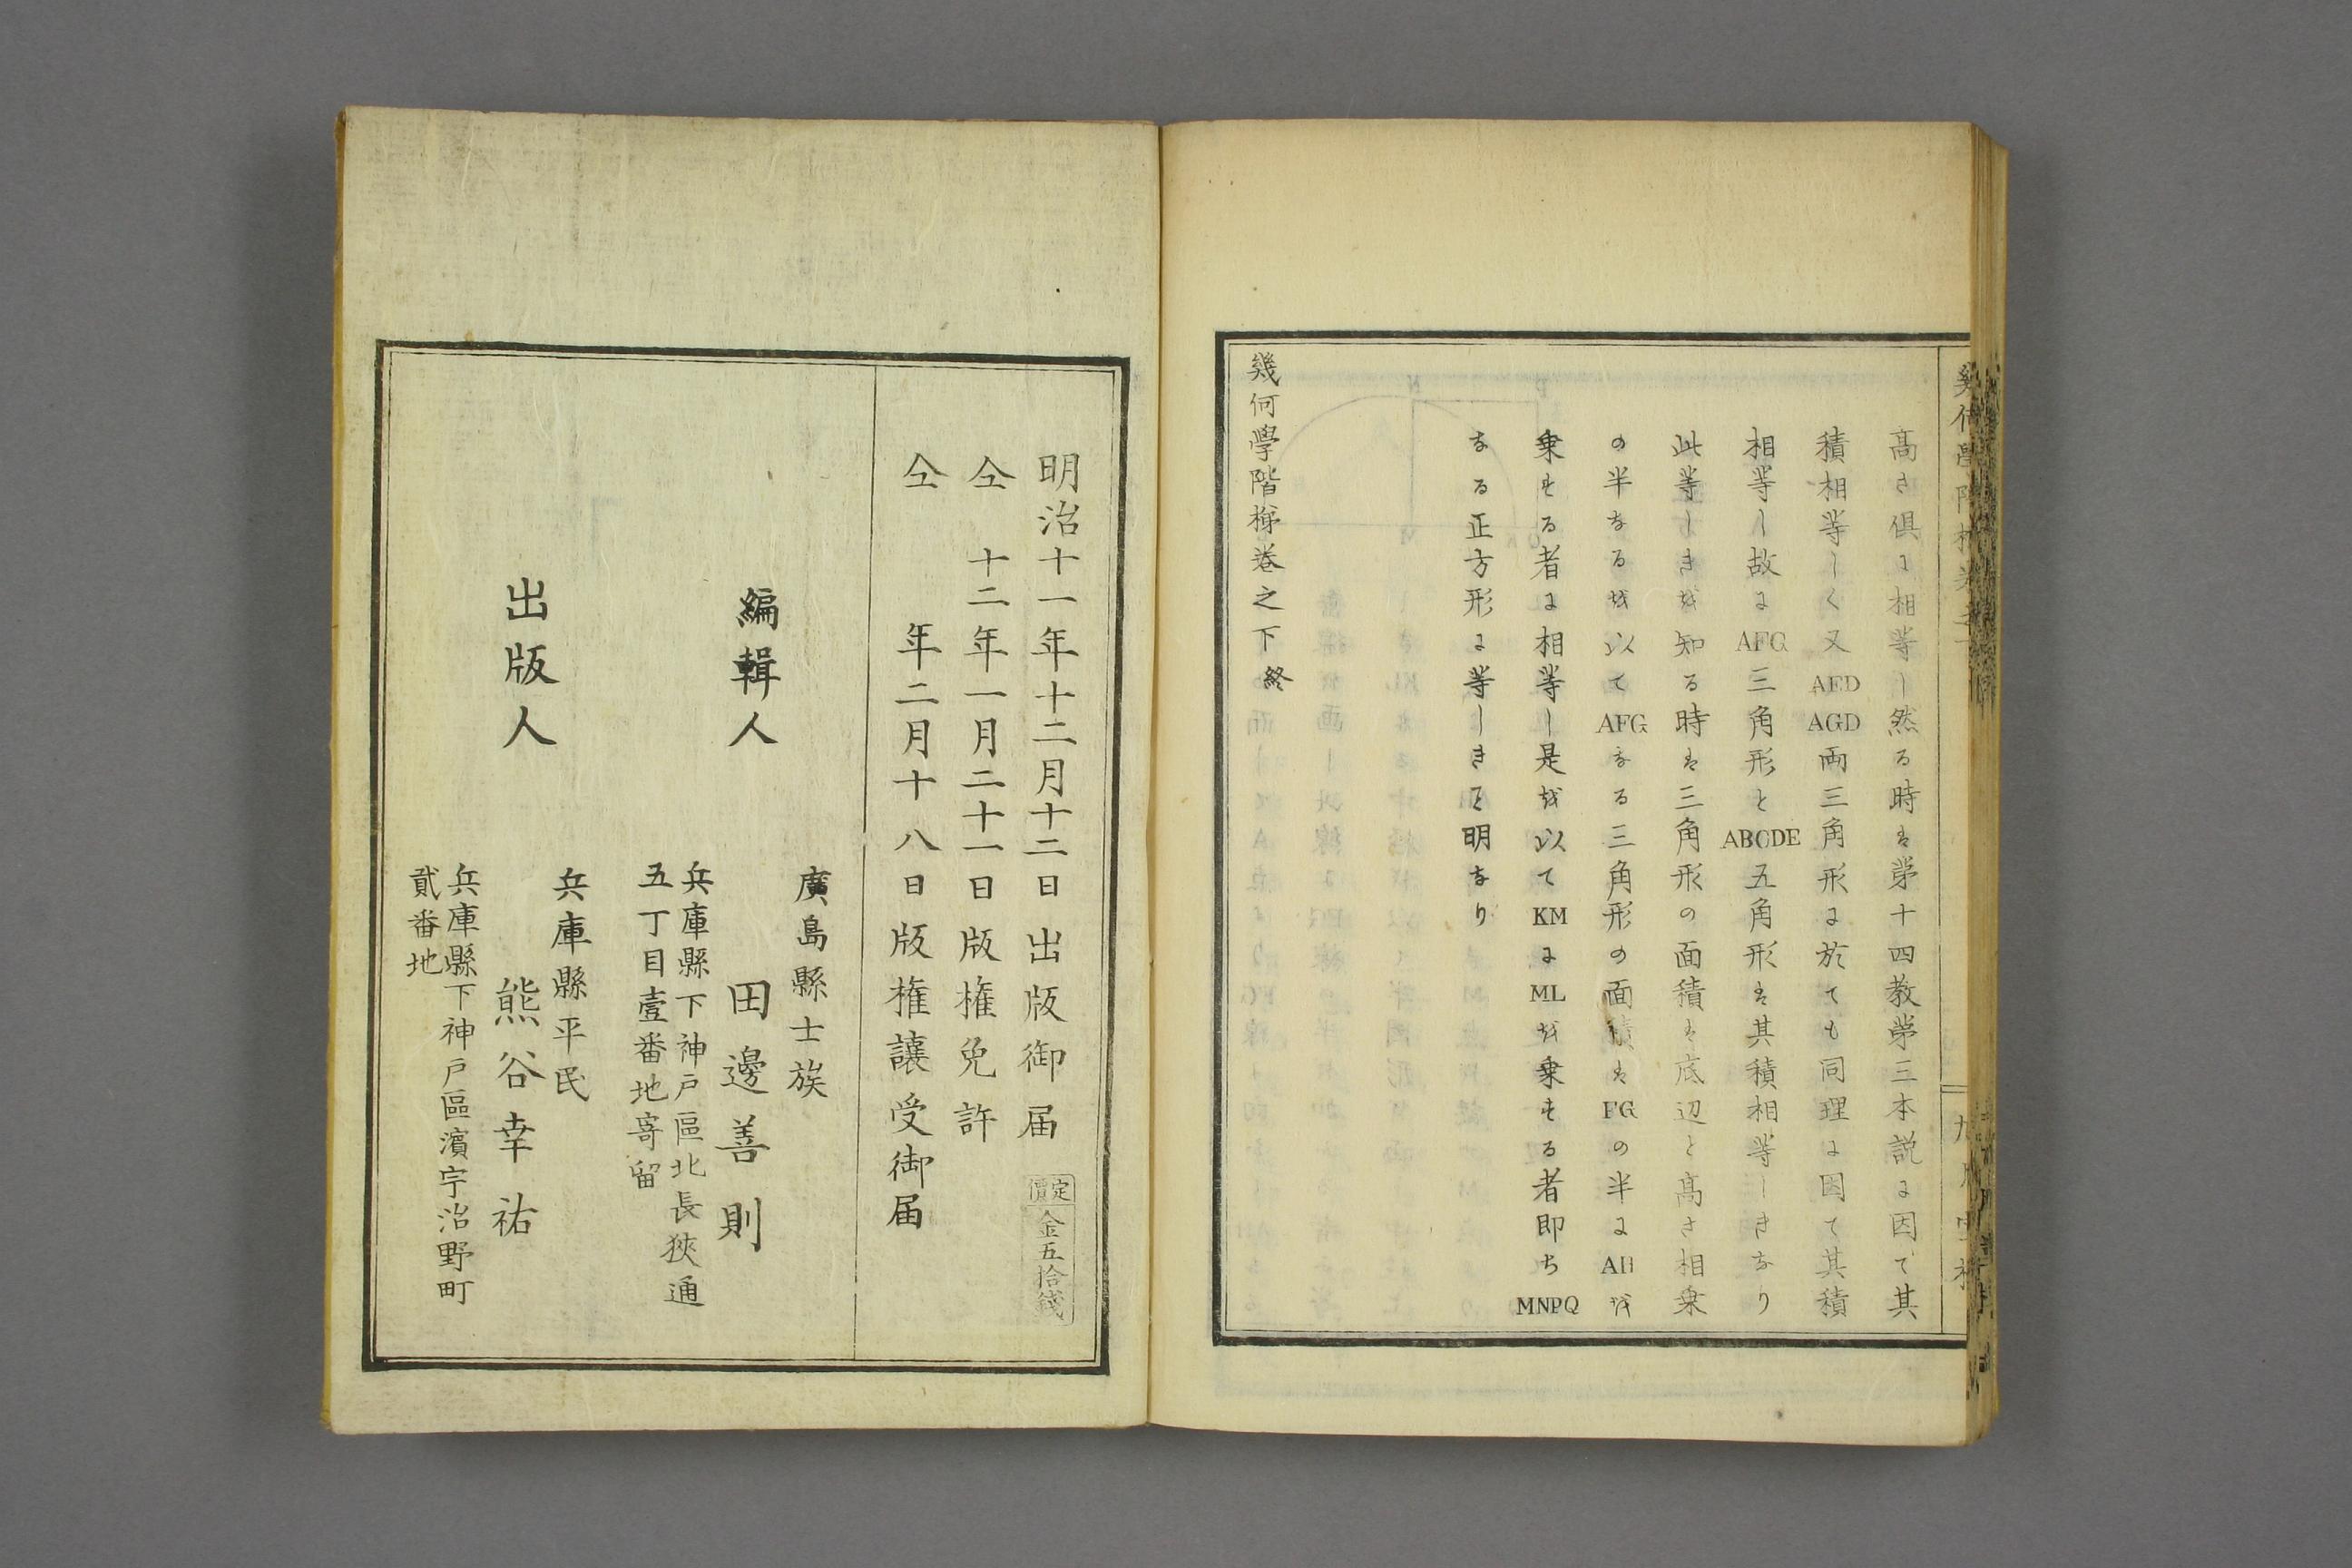 高さ俱に相等し然る時は第十四教第三本説に因て其
積相等しく又AEDAGD両三角形に於ても同理に因て其積
相等し故にAFG三角形とABCDE五角形は其積相等しきなり
此等しきを知る時は三角形の面積は底辺と高さ相乗
の半なるを以てAFGなる三角形の面積はFGの半にAHを
乗する者に相等し是を以てKMにMLを乗する者即ちMNPQ
なる正方形に等しきこと明なり
幾何學階梯巻之下終
明治十一年十二月十二日出版御届
仝十二年一月二十一日版権免許
仝年二月十八日版権讓受御届
定價金五拾錢
編輯人
廣島縣士族
田邊善則
兵庫縣下神戸區北長狹通
五丁目壹番地寄留
出版人
兵庫縣平民
熊谷幸祐
兵庫縣下神戸區濱宇治野町
貳番地